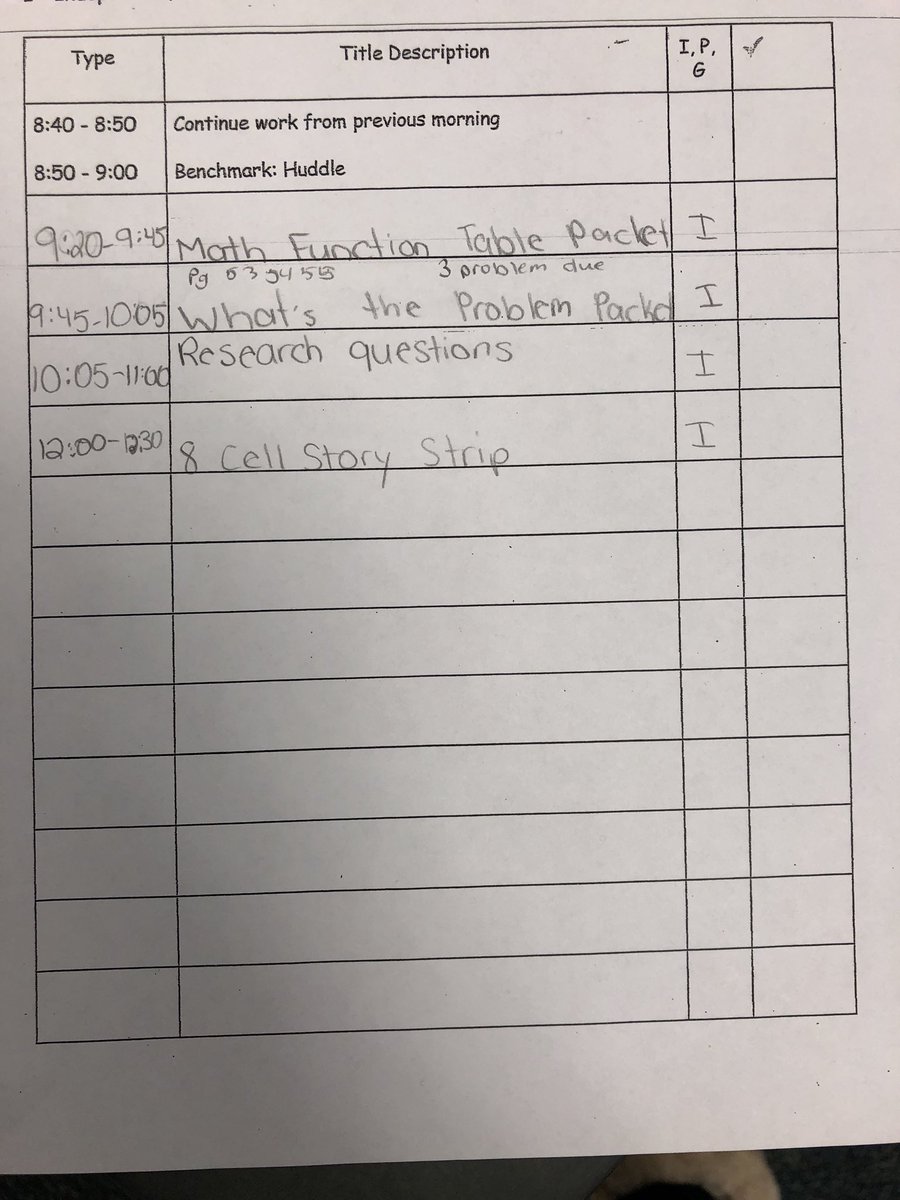 Type Title Description I, P, G ✓
8:40 - 8:50 Continue work from previous morning
8:50 - 9:00 Benchmark: Huddle
9:20-9:45 Math Function Table Packet I
Pg 53 3 problem due
9:45-10:05 What's the Problem I
Research questions
10:05-11:00 I
12:00-12:30 8 Cell Story Strip I